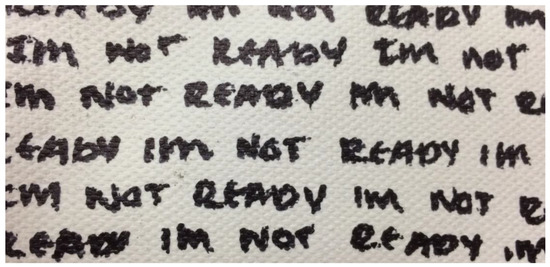 READY IM NOT READY IM
IM NOT READY IM NOT
IM NOT READY IM NOT RE
READY IM NOT READY IM
IM NOT READY IM NOT R
READY IM NOT READY IM